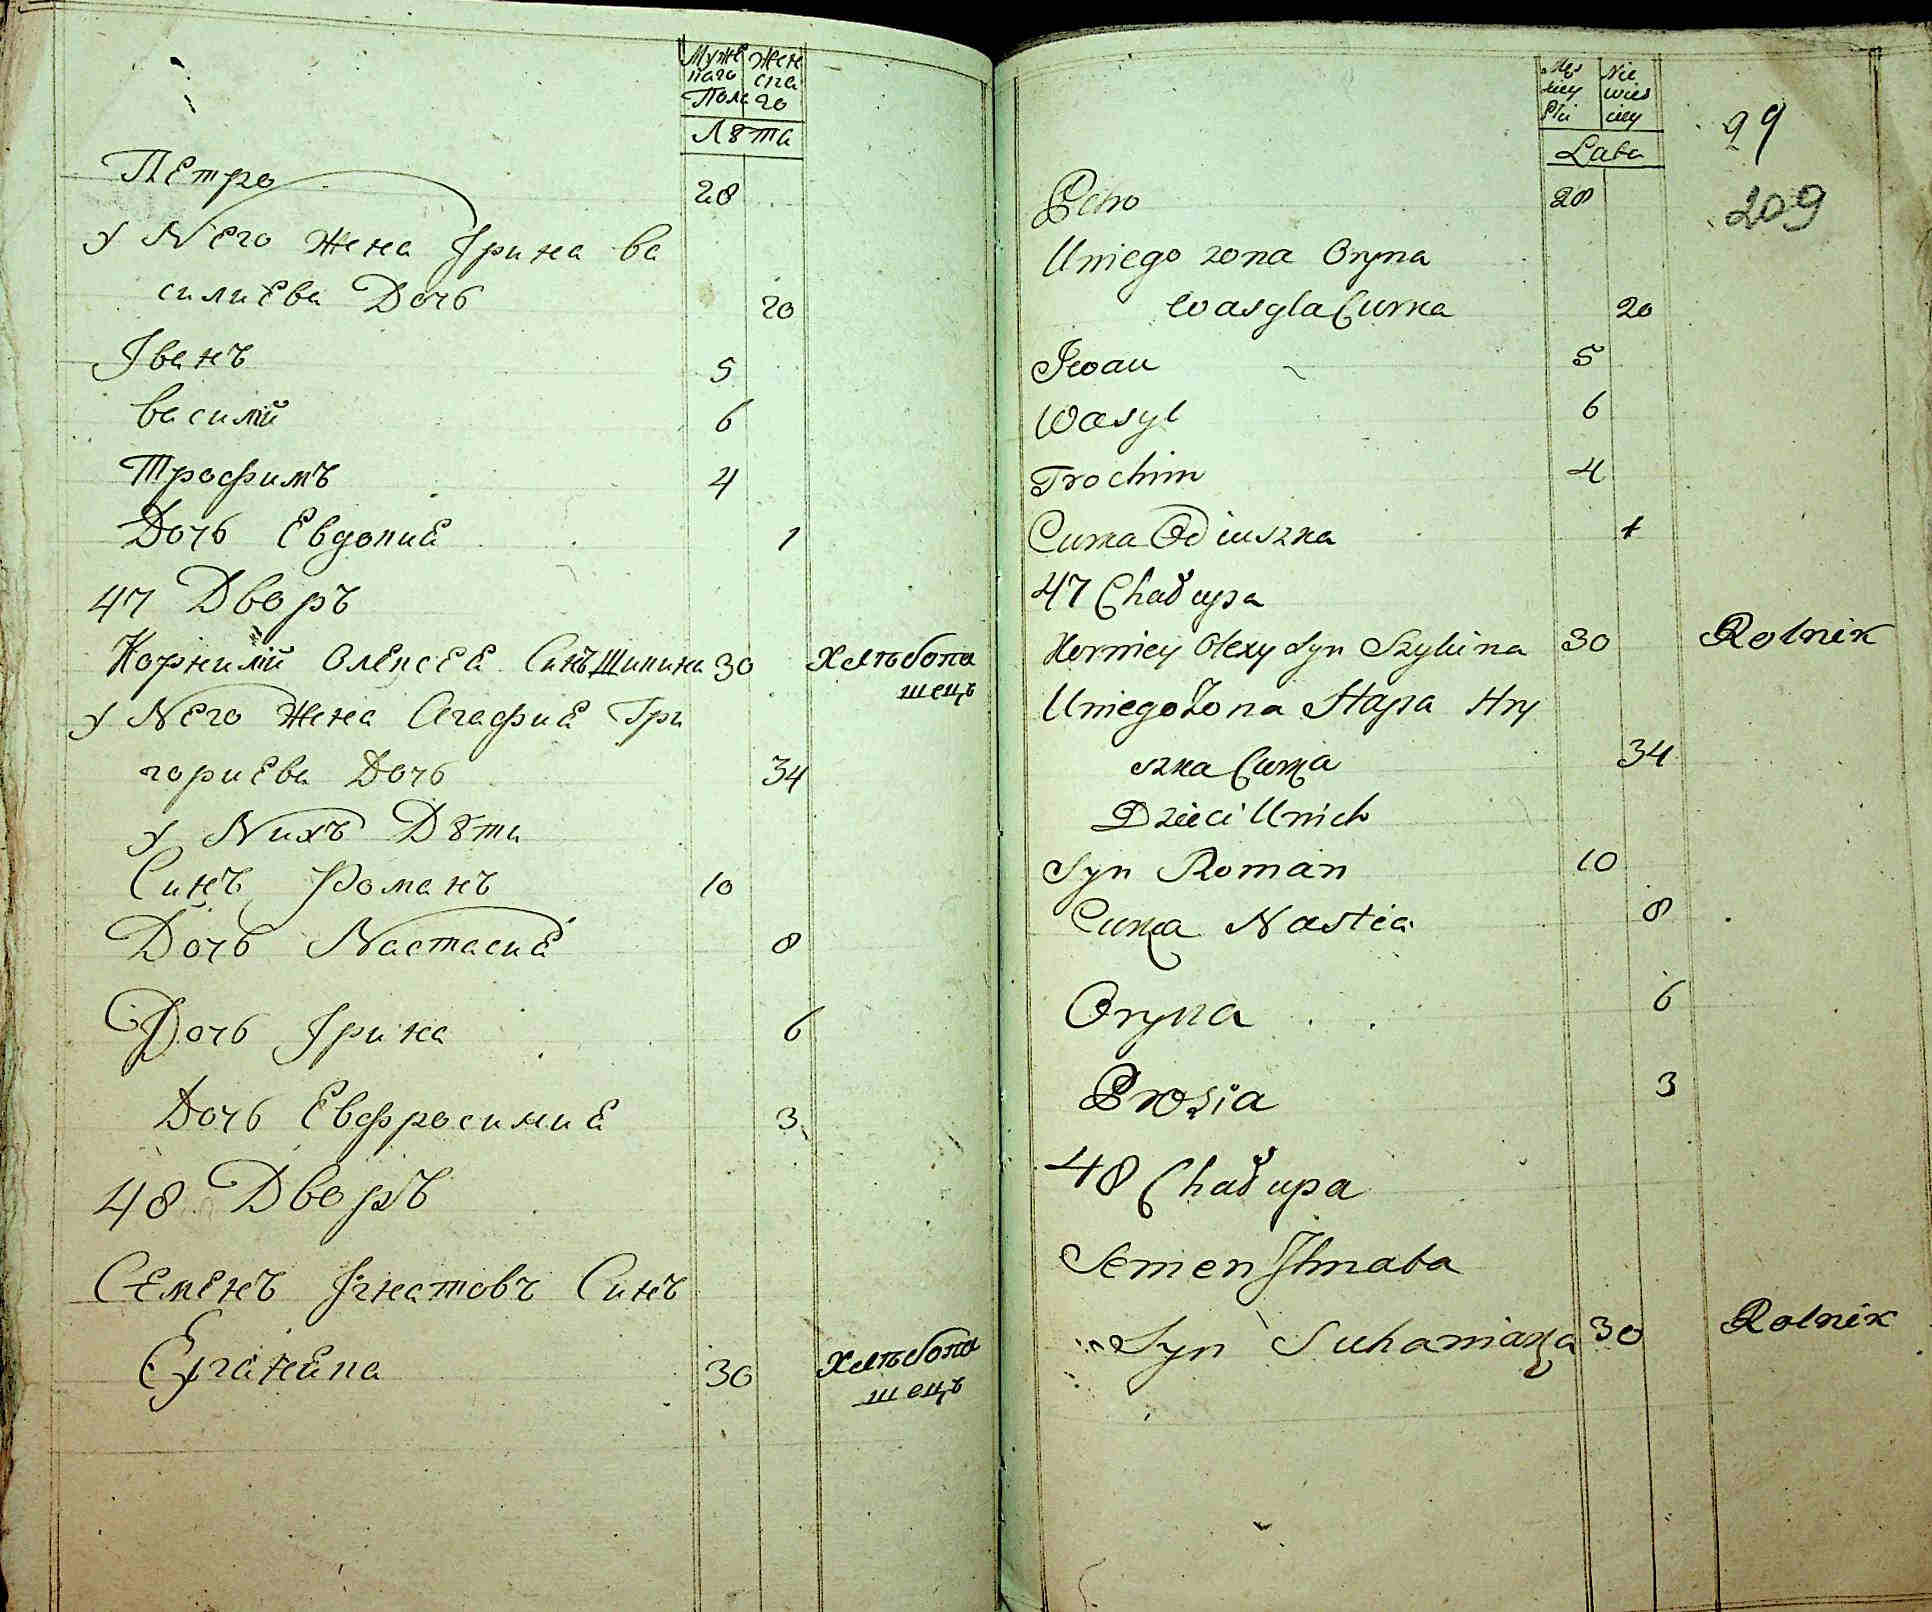 Мужескаго Пола
Женскаго
Лѣта
Петро 28
У Него Жена Ірина ва
силиева Дочь 20
Іванъ 5
василий 6
Трофимъ 4
Дочь Евдокиѣ 1
47 Дворъ
Корнилий Олексеѣ Синъ Шикина 30 Хлѣбопа
шецъ
У Него Жена Агафиѣ Гри
гориева Дочь 34
У Нихъ Дѣти
Синъ Романъ 10
Дочь Настасиѣ 8
Дочь Ірина 6
Дочь Евфросиниѣ 3
48 Дворъ
Семенъ Ігнатовъ Синъ
30 Хлѣбопа
шецъ
Męs
kiey
Płci
Nie
wies
ciey
Lata
99
209
Petro 28
Uniego zona Oryna
Wasyla Curka 20
Iwan 5
Wasyl 6
Trochim 4
Curka Ediuszka 1
47 Chałupa
Korniey Olexy Syn Szykina 30 Rolnik
Uniego Zona Hapa Hry
szka Curka 34
Dzieci Unich
Syn Roman 10
Curka Nastia 8
Oryna 6
Prosia 3
48 Chałupa
Semen Ihnata
Syn Suhaniaka 30 Rolnik